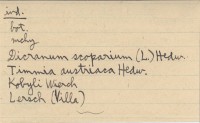 ind.
bot.
mchy
Dicranum scoparium (L.) Hedw.
Timmia austriaca Hedw.
Kobyli Wierch
Lersch (Villa)